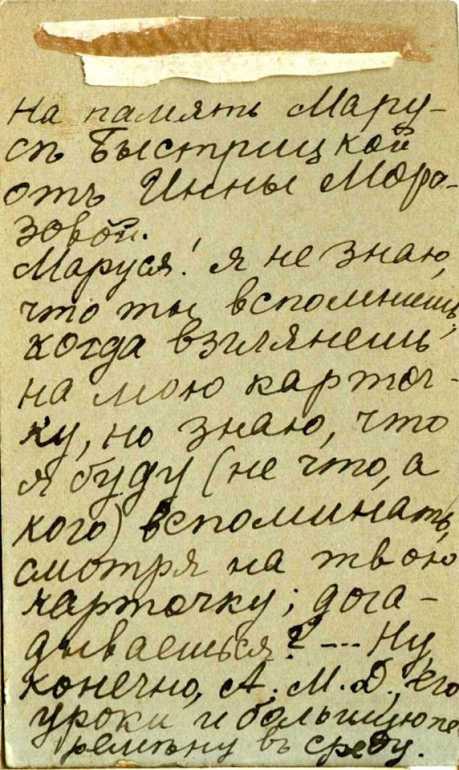 На память Мару-
сѣ Быстрицкой
отъ Инны Моро-
зовой.
Маруся! я не знаю,
что ты вспомнишь,
когда взглянешь
на мою карточ-
ку, но знаю, что
я буду (не что, а
кого) вспоминать,
смотря на твою
карточку; дога-
дываешься? --- Ну,
конечно, А. М. Д., его
уроки и большую пе-
ремѣну въ среду.